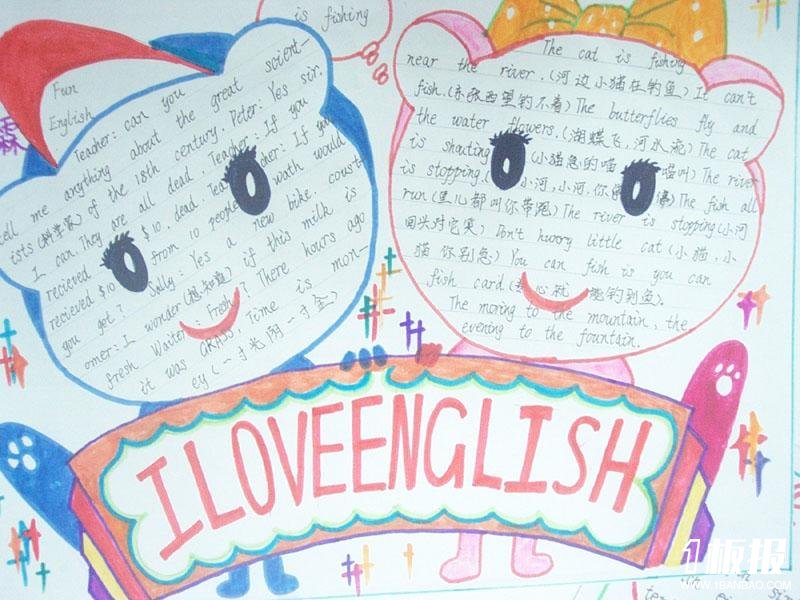 is fishing
Fun
English
霖
Teacher: can you
tell me anything about the great scient-
ists (科学家) of the 18th century. Peter: Yes sir.
I can. They are all dead. Teacher: If you
recieved $10 dead. Teacher: If you
recieved $10 from 10 people wath would
you got? Sally: Yes a new bike coust-
omer: I wonder (想知道) if this milk is
fresh Waiter: Fresh? There hours ago
it was GRASS, Time is mon-
ey (一寸光阴一寸金)
The cat is fishing
near the river. (河边小猫在钓鱼) It can't
fish. (东张西望钓不着) The butterflies fly and
the water flowers. (蝴蝶飞,河水流) The cat
is shouting (小猫急的喵喵叫) The river
is stopping (小河,小河,你) The fish all
run (鱼儿都叫你带跑) The river is stopping (小河
回头对它笑) Don't hurry little cat (小猫,小
猫你别急) You can fish is you can
fish card (心就能钓到鱼).
The moring to the mountain, the
evening to the fountain.
ILOVEENGLISH
1板报
WWW.1BANBAO.COM